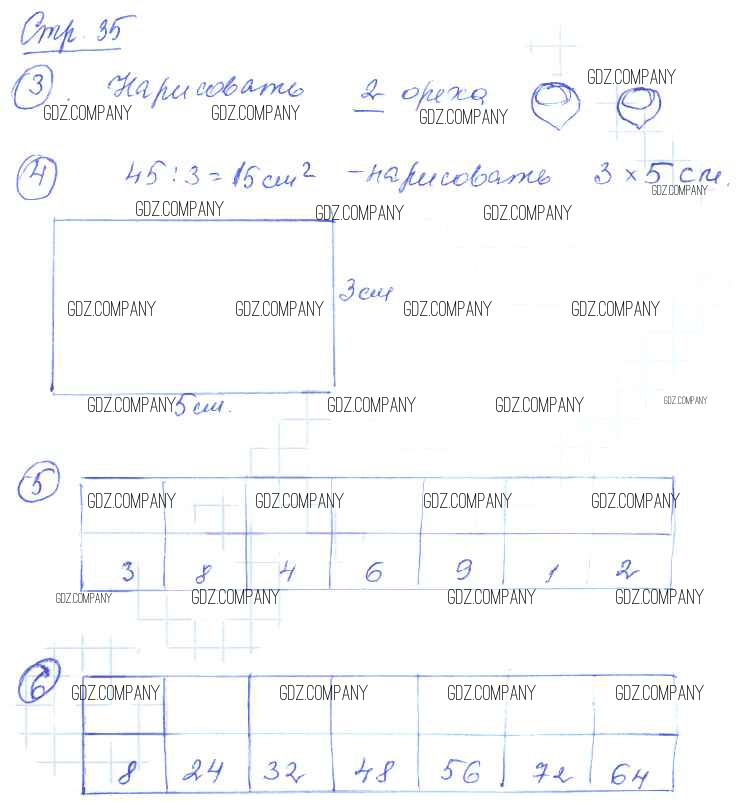 Стр. 35
GDZ.COMPANY
3. Нарисовать 2 ореха
GDZ.COMPANY GDZ.COMPANY GDZ.COMPANY
4 45 : 3 = 15 см² – нарисовать 3 × 5 см.
GDZ.COMPANY
GDZ.COMPANY GDZ.COMPANY GDZ.COMPANY
3 см
GDZ.COMPANY GDZ.COMPANY GDZ.COMPANY GDZ.COMPANY
GDZ.COMPANY 5 см. GDZ.COMPANY GDZ.COMPANY GDZ.COMPANY
5
GDZ.COMPANY GDZ.COMPANY GDZ.COMPANY GDZ.COMPANY
3 8 4 6 9 1 2
GDZ.COMPANY GDZ.COMPANY GDZ.COMPANY GDZ.COMPANY
6
GDZ.COMPANY GDZ.COMPANY GDZ.COMPANY GDZ.COMPANY
8 24 32 48 56 72 64